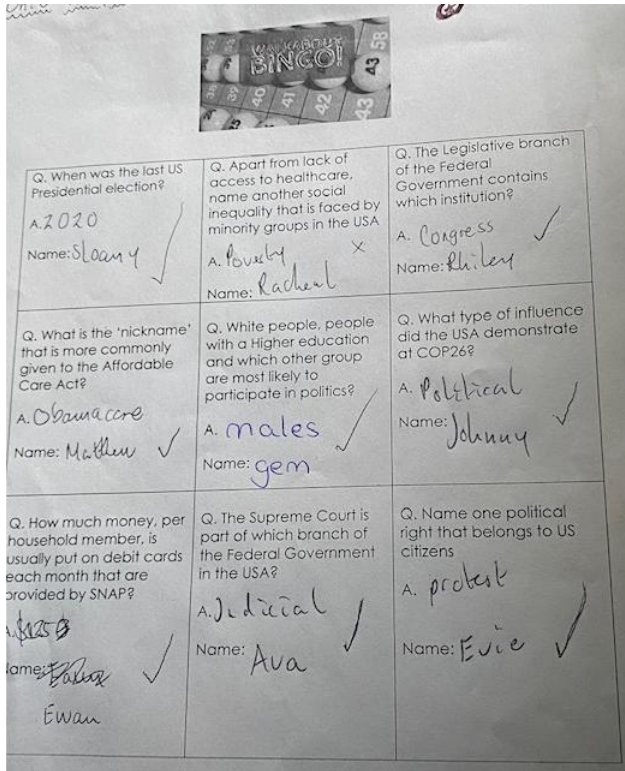 WALKABOUT
BINGO!
43 58
38
39
40
41
42
43
Q. When was the last US
Presidential election?
A. 2020
Name: Sloany
Q. Apart from lack of
access to healthcare,
name another social
inequality that is faced by
minority groups in the USA
A. Poverty
Name: Racheal
Q. The Legislative branch
of the Federal
Government contains
which institution?
A. Congress
Name: Rhiley
Q. What is the 'nickname'
that is more commonly
given to the Affordable
Care Act?
A. Obamacare
Name: Matthew
Q. White people, people
with a Higher education
and which other group
are most likely to
participate in politics?
A. males
Name: gem
Q. What type of influence
did the USA demonstrate
at COP26?
A. Political
Name: Johnny
Q. How much money, per
household member, is
usually put on debit cards
each month that are
provided by SNAP?
$125
Name:
Ewan
Q. The Supreme Court is
part of which branch of
the Federal Government
in the USA?
A. Judicial
Name:
Ava
Q. Name one political
right that belongs to US
citizens
A. protest
Name: Evie